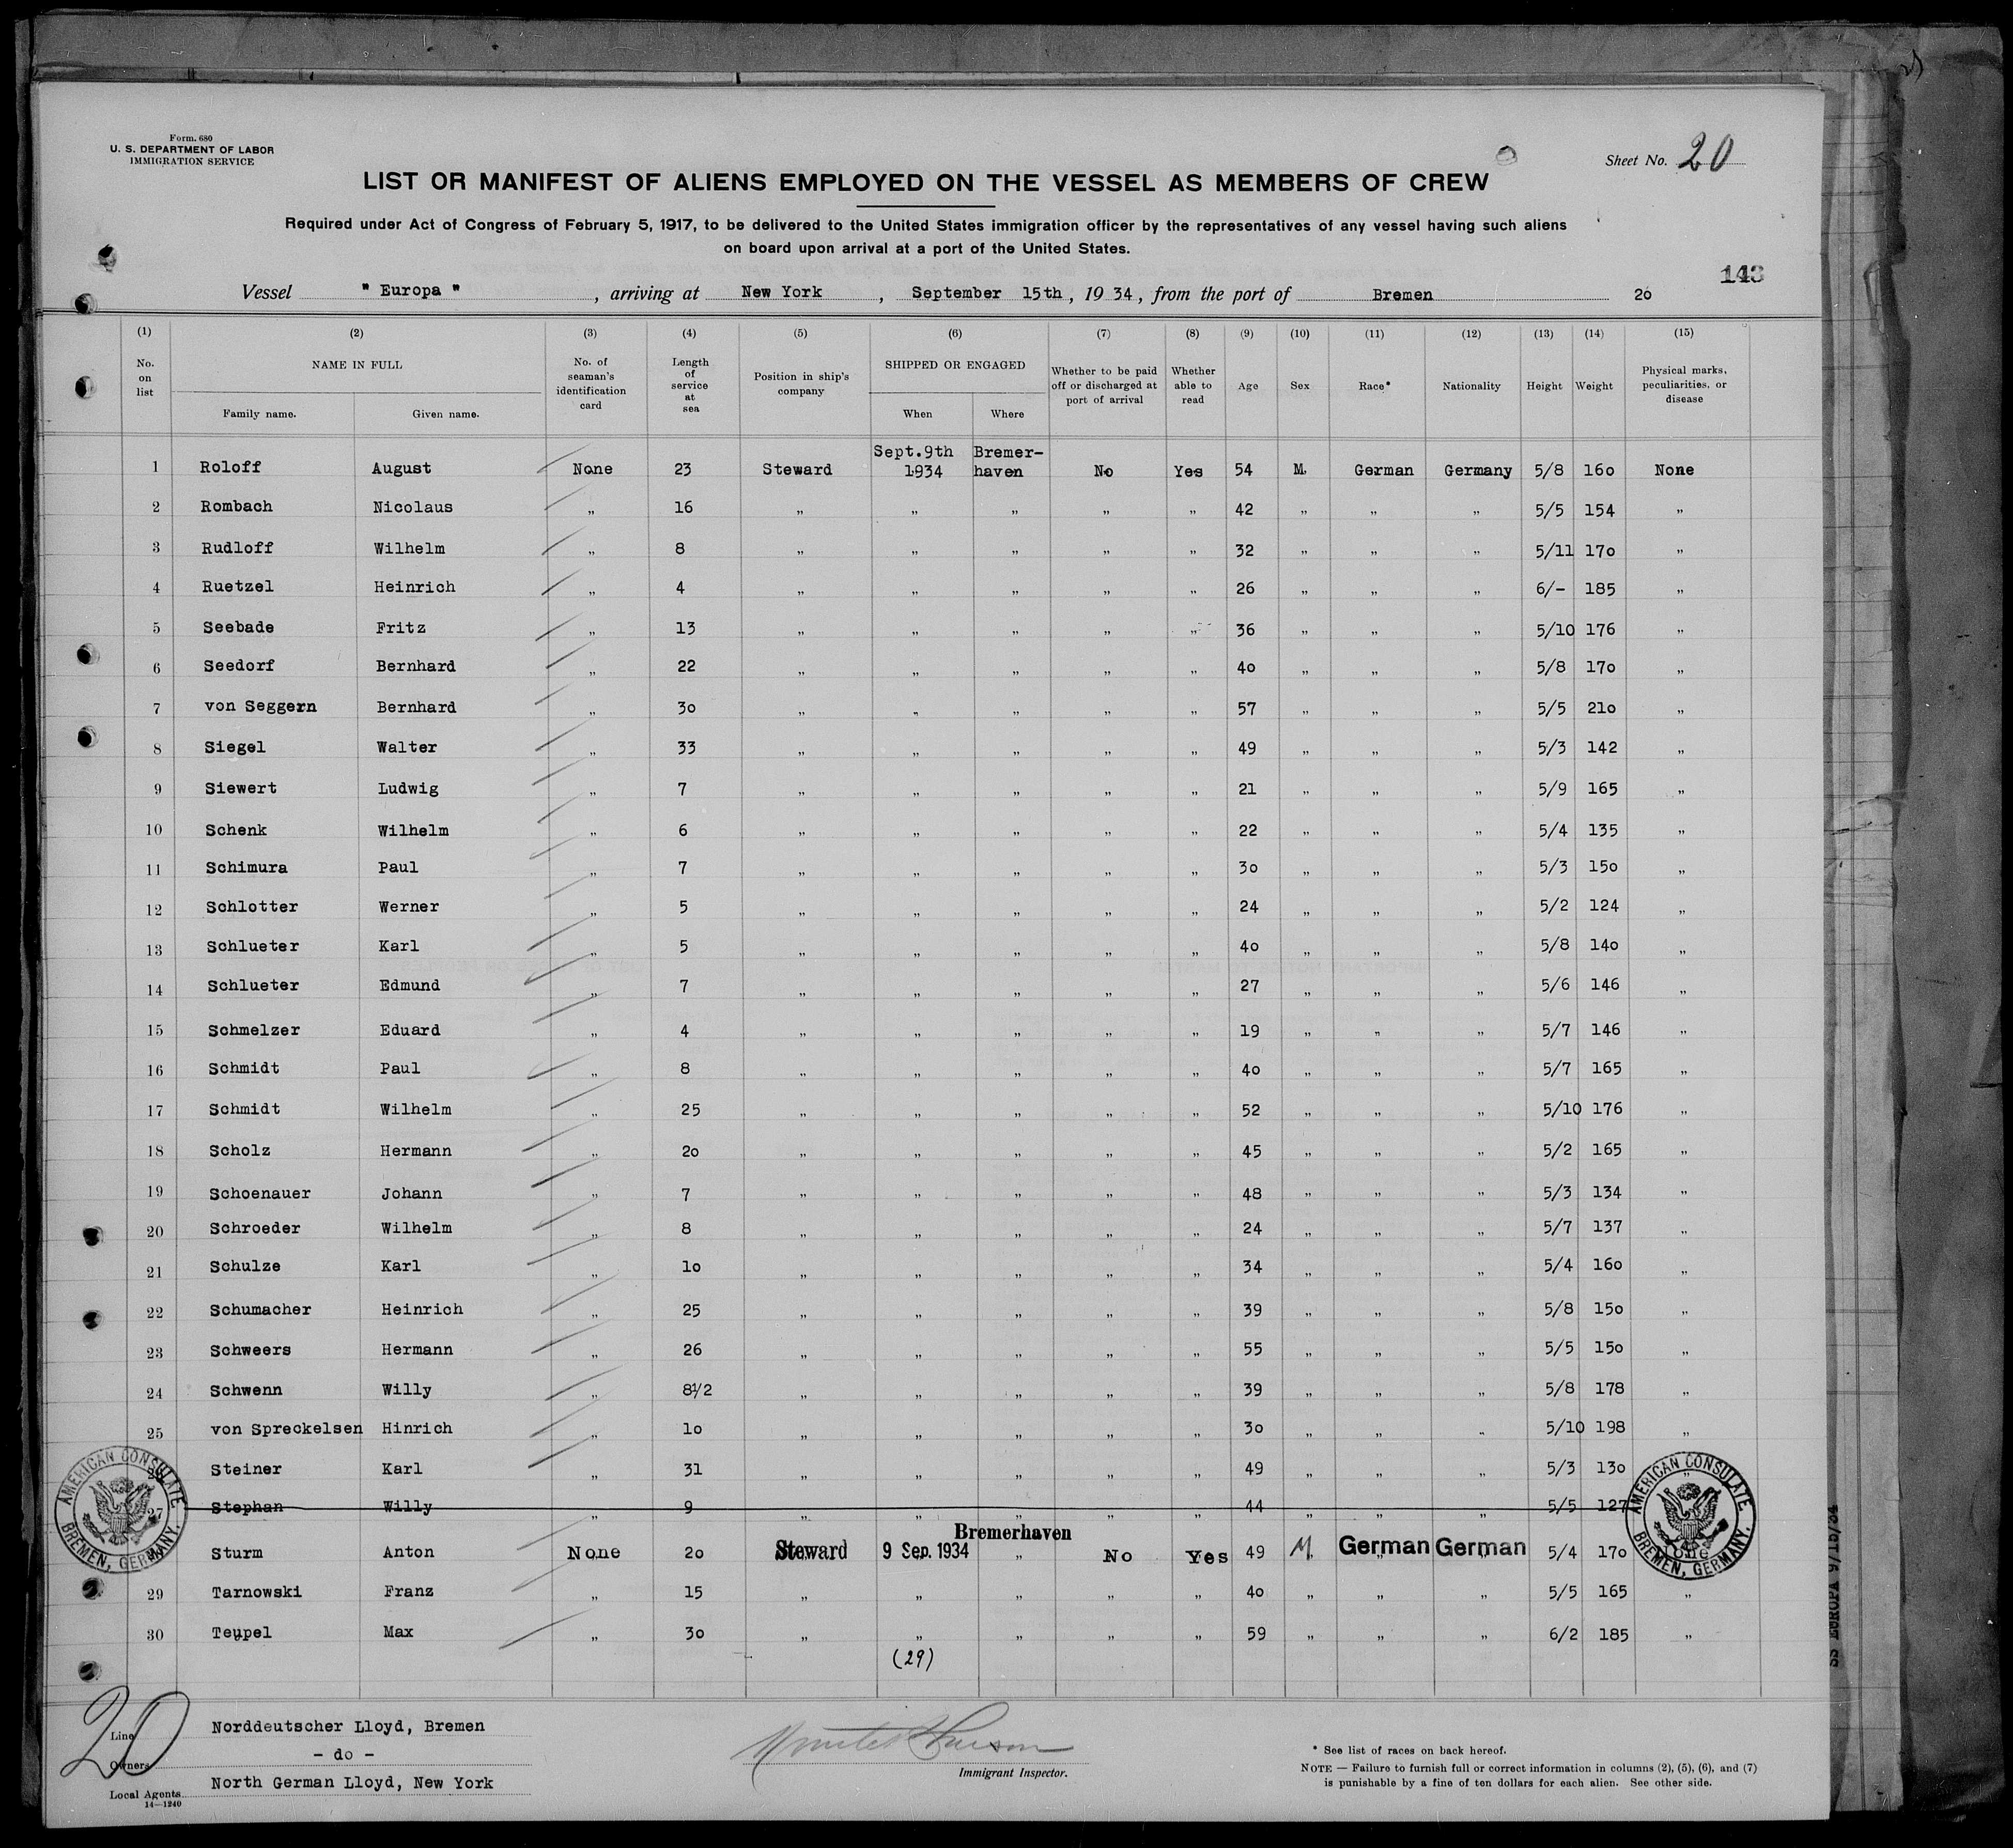 Form. 680
U. S. DEPARTMENT OF LABOR
IMMIGRATION SERVICE
Sheet No. 20
LIST OR MANIFEST OF ALIENS EMPLOYED ON THE VESSEL AS MEMBERS OF CREW
Required under Act of Congress of February 5, 1917, to be delivered to the United States immigration officer by the representatives of any vessel having such aliens
on board upon arrival at a port of the United States.
143
Vessel " Europa " , arriving at New York , September 15th , 19 34 , from the port of Bremen 20
(1) (2) (3) (4) (5) (6) (7) (8) (9) (10) (11) (12) (13) (14) (15)
No. on list NAME IN FULL Family name. Given name. No. of seaman's identification card Length of service at sea Position in ship's company SHIPPED OR ENGAGED When Where Whether to be paid off or discharged at port of arrival Whether able to read Age Sex Race* Nationality Height Weight Physical marks, peculiarities, or disease
1 Roloff August None 23 Steward Sept.9th 1934 Bremer-haven No Yes 54 M. German Germany 5/8 160 None
2 Rombach Nicolaus " 16 " " " " " 42 " " " 5/5 154 "
3 Rudloff Wilhelm " 8 " " " " " 32 " " " 5/11 170 "
4 Ruetzel Heinrich " 4 " " " " " 26 " " " 6/- 185 "
5 Seebade Fritz " 13 " " " " " 36 " " " 5/10 176 "
6 Seedorf Bernhard " 22 " " " " " 40 " " " 5/8 170 "
7 von Seggern Bernhard " 30 " " " " " 57 " " " 5/5 210 "
8 Siegel Walter " 33 " " " " " 49 " " " 5/3 142 "
9 Siewert Ludwig " 7 " " " " " 21 " " " 5/9 165 "
10 Schenk Wilhelm " 6 " " " " " 22 " " " 5/4 135 "
11 Schimura Paul " 7 " " " " " 30 " " " 5/3 150 "
12 Schlotter Werner " 5 " " " " " 24 " " " 5/2 124 "
13 Schlueter Karl " 5 " " " " " 40 " " " 5/8 140 "
14 Schlueter Edmund " 7 " " " " " 27 " " " 5/6 146 "
15 Schmelzer Eduard " 4 " " " " " 19 " " " 5/7 146 "
16 Schmidt Paul " 8 " " " " " 40 " " " 5/7 165 "
17 Schmidt Wilhelm " 25 " " " " " 52 " " " 5/10 176 "
18 Scholz Hermann " 20 " " " " " 45 " " " 5/2 165 "
19 Schoenauer Johann " 7 " " " " " 48 " " " 5/3 134 "
20 Schroeder Wilhelm " 8 " " " " " 24 " " " 5/7 137 "
21 Schulze Karl " 10 " " " " " 34 " " " 5/4 160 "
22 Schumacher Heinrich " 25 " " " " " 39 " " " 5/8 150 "
23 Schweers Hermann " 26 " " " " " 55 " " " 5/5 150 "
24 Schwenn Willy " 8 1/2 " " " " " 39 " " " 5/8 178 "
25 von Spreckelsen Hinrich " 10 " " " " " 30 " " " 5/10 198 "
Steiner Karl " 31 " " " " " 49 " " " 5/3 130 "
27 Stephan Willy " 9 " " " " " 44 " " " 5/5 127
Sturm Anton None 20 Steward 9 Sep. 1934 Bremerhaven " No Yes 49 M German German 5/4 170 None
29 Tarnowski Franz " 15 " " " " " 40 " " " 5/5 165 "
30 Teupel Max " 30 " " " " " 59 " " " 6/2 185 "
(29)
AMERICAN CONSULATE BREMEN, GERMANY.
AMERICAN CONSULATE BREMEN, GERMANY.
20
Line Norddeutscher Lloyd, Bremen
Owners - do -
Local Agents North German Lloyd, New York
14—1240
Immigrant Inspector.
* See list of races on back hereof.
NOTE — Failure to furnish full or correct information in columns (2), (5), (6), and (7)
is punishable by a fine of ten dollars for each alien. See other side.
SS EUROPA 9/15/34